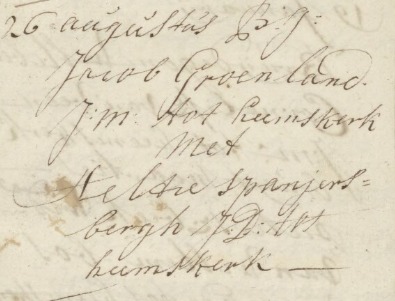 26 augustus B:g:
Jacob Groenland.
J:m: tot heemskerk
Met
Neltie Spanjers=
bergh J:D: tot
heemskerk —